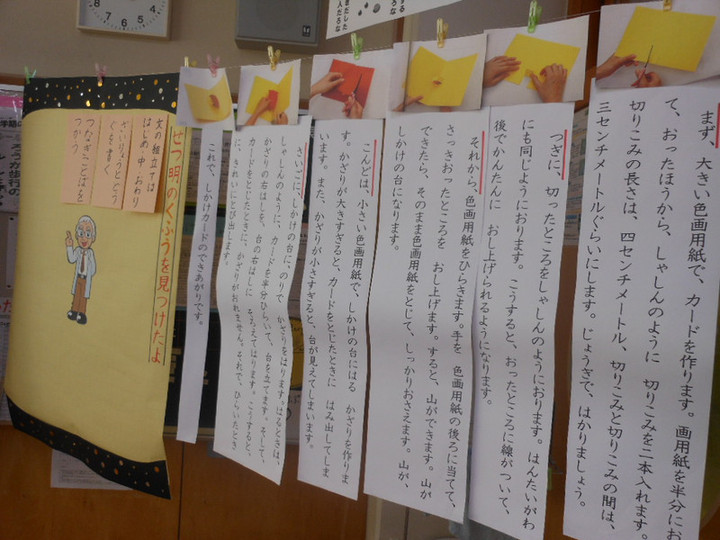 まず、大きい色画用紙で、カードを作ります。画用紙を半分にお
て、おったほうから、しゃしんのように 切りこみを二本入れます。
切りこみの長さは、四センチメートル、切りこみと切りこみの間は、
三センチメートルぐらいにします。じょうぎで、はかりましょう。
つぎに、切ったところをしゃしんのようにおります。はんたいがわ
にも同じようにおります。こうすると、おったところに線がついて、
後でかんたんに おし上げられるようになります。
それから、色画用紙をひらきます。手を 色画用紙の後ろに当てて、
さっきおったところを おし上げます。すると、山ができます。山が
できたら、そのまま色画用紙をとじて、しっかりおさえます。山が、
しかけの台になります。
こんどは、小さい色画用紙で、しかけの台にはる かざりを作りま
す。かざりが大きすぎると、カードをとじたときに はみ出してしま
います。また、かざりが小さすぎると、台が見えてしまいます。
さいごに、しかけの台に、のりで かざりをはります。はるときは、
しゃしんのように、カードを半分ひらいて、台を立てます。そして、
かざりの右はしを、台の右はしに そろえてはります。こうすると、
カードをとじたときに、かざりがおれません。それで、ひらいたとき
に、きれいにとび出します。
これで、しかけカードのできあがりです。
せつ明のくふうを見つけたよ
文の組立ては
はじめ・中・おわり
ざいりょうとどう
ぐを書く
つなぎことばを
つかう